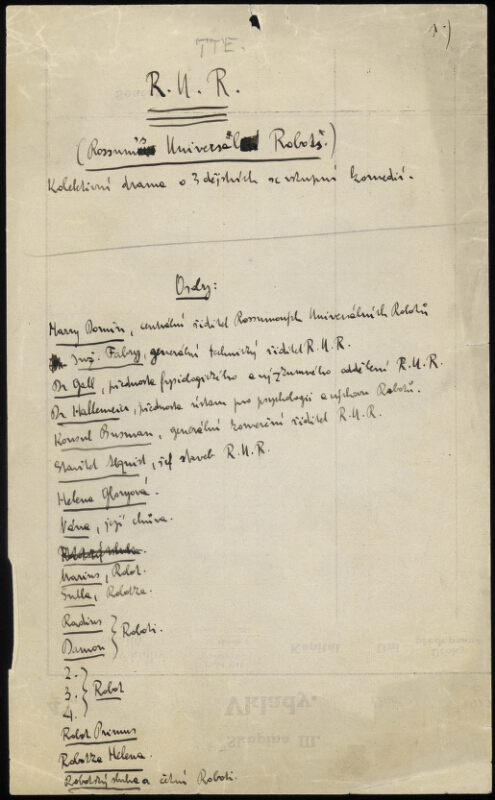 1)
TTE.
R.U.R.
(Rossum's Universal Robots.)
Kolektivní drama o 3 dějstvích se vstupní komedií.
Osoby:
Harry Domin, centrální ředitel Rossumových Universálních Robotů
Inž. Fabry, generální technický ředitel R.U.R.
Dr Gall, přednosta fysiologického a výzkumného oddělení R.U.R.
Dr Hallemeier, přednosta ústavu pro psychologii a výchovu Robotů.
Konsul Busman, generální komerční ředitel R.U.R.
Stavitel Alquist, šéf staveb R.U.R.
Helena Gloryová.
Nána, její chůva.
Marius, Robot.
Sulla, Robotka.
Radius
Damon } Roboti.
2.
3. } Robot
4.
Robot Primus
Robotka Helena.
Robotský sluha a četní Roboti.
Kapitál
Vklady.
Skupina III.